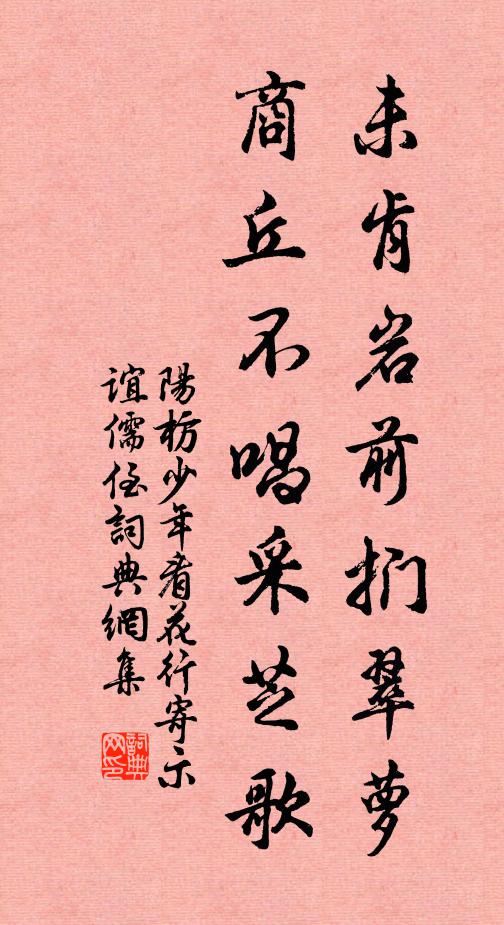 未肯岩前捫翠蘿
商丘不唱采芝歌
陽枋少年看花行寄示
誼儒侄詞典網集
詞典网印